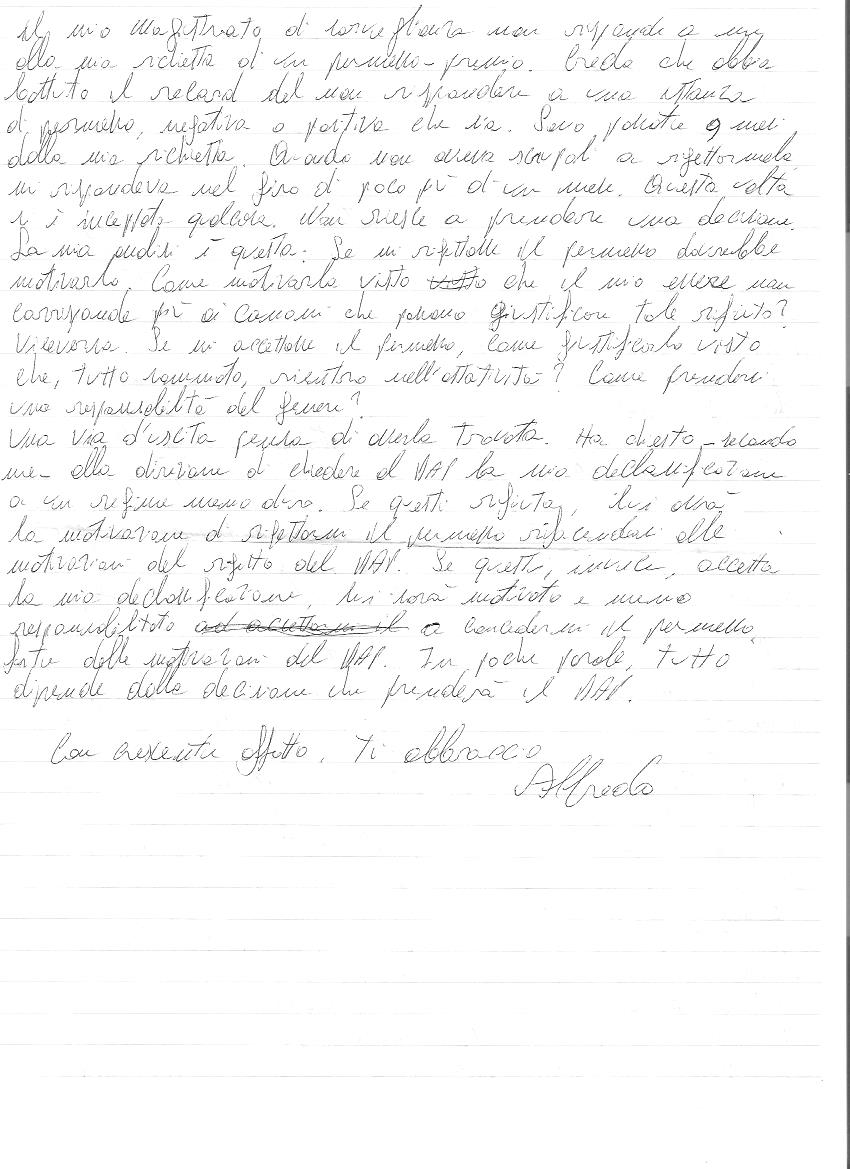 Il mio Magistrato di sorveglianza non risponde a
alla mia richiesta di un permesso-premio. Credo che abbia
battuto il record del non rispondere a una istanza
di permesso, negativa o positiva che sia. Sono passati 9 mesi
dalla mia richiesta. Quando non aveva scrupoli a rigettarmela
mi rispondeva nel giro di poco più di un mese. Questa volta
si è inceppato qualcosa. Non riesce a prendere una decisione.
La mia analisi è questa: Se mi rigettasse il permesso dovrebbe
motivarlo. Come motivarlo visto che il mio essere non
corrisponde più ai canoni che possano giustificare tale rifiuto?
Viceversa. Se mi accettasse il permesso, come giustificarlo visto
che, tutto sommato, rientro nell'ostatività? Come prendersi
una responsabilità del genere?
Una via d'uscita pensa di averla trovata. Ha chiesto -secondo
me- alla direzione di chiedere al DAP la mia declassificazione
a un regime meno duro. Se questi rifiuta, lui avrà
la motivazione di rigettarmi il permesso rifacendosi alle
motivazioni del rigetto del DAP. Se questi, invece, accetta
la mia declassificazione, lui sarà motivato e meno
responsabilitato ad accettarmi il a concedermi il permesso,
forte delle motivazioni del DAP. In poche parole, tutto
dipende dalla decisione che prenderà il DAP.
Con crescente affetto, Ti abbraccio
Alfredo